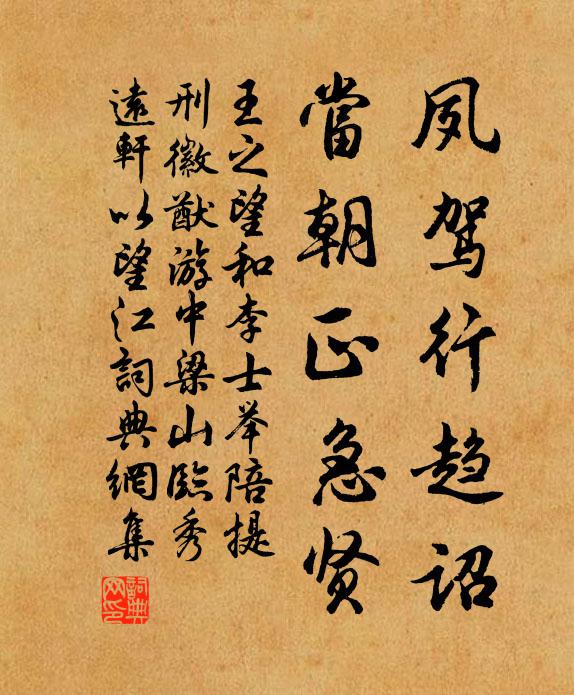 夙驾行趋诏
當朝正急贤
王之望和李士举陪提
刑徽猷游中梁山臨秀
遠軒以望江詞典網集
詞典
网印